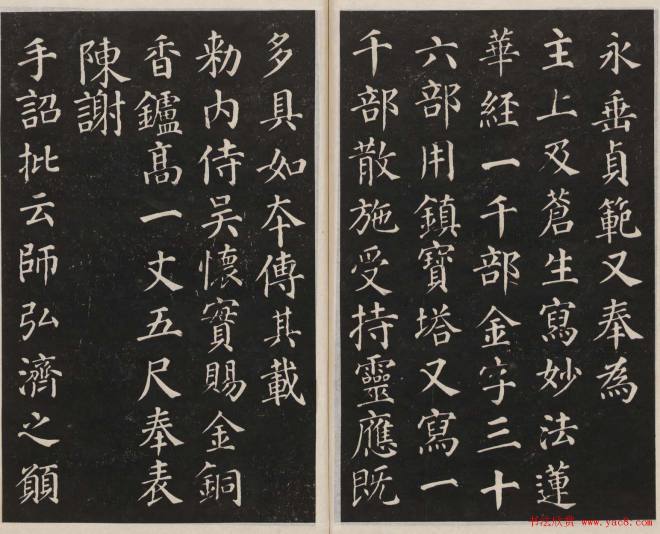 永垂貞範又奉為
主上及蒼生寫妙法蓮
華經一千部金字三十
六部用鎮寶塔又寫一
千部散施受持靈應既
多具如本傳其載
勑内侍吴懷實賜金銅
香鑪高一丈五尺奉表
陳謝
手詔批云師弘濟之願
书法欣赏 www.yac8.com